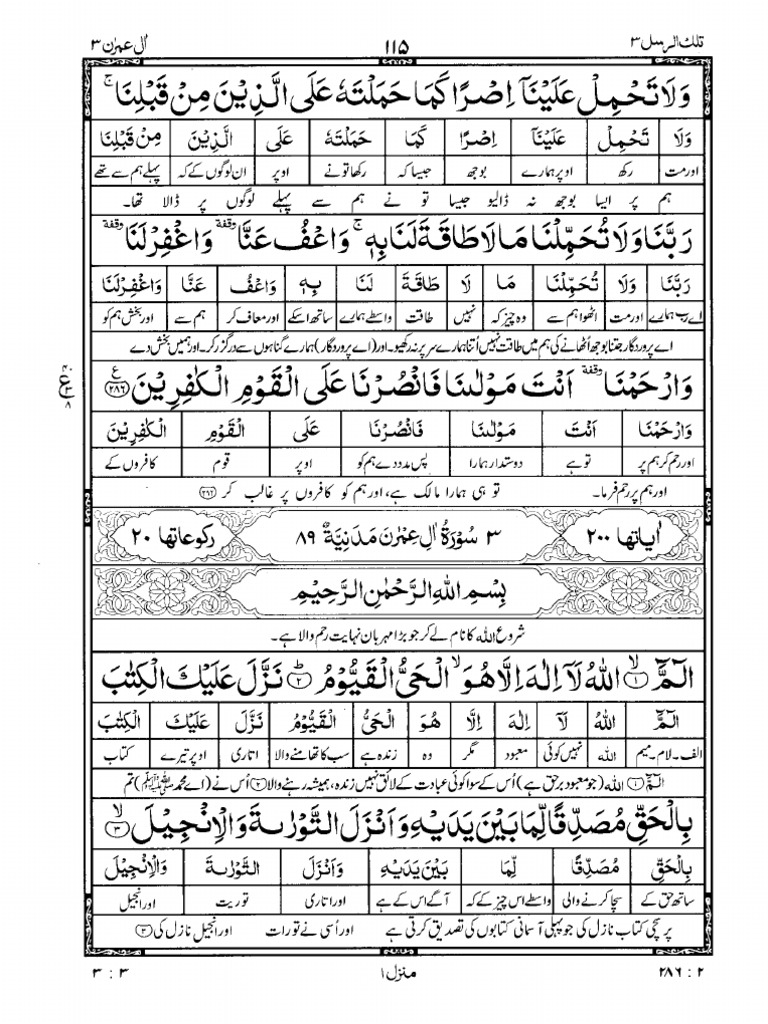 تلك الرسل ٣ ١١٥ اٰل عمرٰن ٣
وَلَا تَحْمِلْ عَلَيْنَآ اِصْرًا كَمَا حَمَلْتَهٗ عَلَى الَّذِيْنَ مِنْ قَبْلِنَا ۚ
وَلَا تَحْمِلْ عَلَيْنَآ اِصْرًا كَمَا حَمَلْتَهٗ عَلَى الَّذِيْنَ مِنْ قَبْلِنَا
اور مت رکھ اوپر ہمارے بوجھ جیسا کہ رکھا تو نے اوپر ان لوگوں کے کہ پہلے ہم سے تھے
ہم پر ایسا بوجھ نہ ڈالیو جیسا تو نے ہم سے پہلے لوگوں پر ڈالا تھا۔
رَبَّنَا وَلَا تُحَمِّلْنَا مَا لَا طَاقَةَ لَنَا بِهٖ ۚ وَاعْفُ عَنَّا وقفة وَاغْفِرْ لَنَا وقفة
رَبَّنَا وَلَا تُحَمِّلْنَا مَا لَا طَاقَةَ لَنَا بِهٖ وَاعْفُ عَنَّا وَاغْفِرْلَنَا
اے رب ہمارے اور مت اٹھوا ہم سے وہ چیز کہ نہیں طاقت واسطے ہمارے ساتھ اسکے اور معاف کر ہم سے اور بخش ہم کو
اے پروردگار جتنا بوجھ اُٹھانے کی ہم میں طاقت نہیں اُتنا ہمارے سر پر نہ رکھیو۔ اور (اے پروردگار) ہمارے گناہوں سے درگزر کر۔ اور ہمیں بخش دے
وَارْحَمْنَا وقفة اَنْتَ مَوْلٰىنَا فَانْصُرْنَا عَلَى الْقَوْمِ الْكٰفِرِيْنَ ع ۲۸۶
وَارْحَمْنَا اَنْتَ مَوْلٰىنَا فَانْصُرْنَا عَلَى الْقَوْمِ الْكٰفِرِيْنَ
اور رحم کر ہم پر تو ہے دوستدار ہمارا پس مدد دے ہم کو اوپر قوم کافروں کے
اور ہم پر رحم فرما۔ تو ہی ہمارا مالک ہے، اور ہم کو کافروں پر غالب کر ۲۸۶
اٰیاتھا ۲۰۰ ٣ سُوْرَةُ اٰلِ عِمْرٰنَ مَدَنِيَّةٌ ٨٩ ركوعاتها ٢٠
بِسْمِ اللهِ الرَّحْمٰنِ الرَّحِيْمِ
شروع اللہ کا نام لے کر جو بڑا مہربان نہایت رحم والا ہے۔
الٓمّٓ ۙ ١ اللهُ لَآ اِلٰهَ اِلَّا هُوَ ۙ الْحَيُّ الْقَيُّوْمُ ط ٢ نَزَّلَ عَلَيْكَ الْكِتٰبَ
الٓمّٓ اللهُ لَآ اِلٰهَ اِلَّا هُوَ الْحَيُّ الْقَيُّوْمُ نَزَّلَ عَلَيْكَ الْكِتٰبَ
الف۔ لام۔ میم اللہ نہیں کوئی معبود مگر وہ زندہ ہے سب کا تھامنے والا اتاری اوپر تیرے کتاب
الٓمّٓ ١ اللہ (جو معبود برحق ہے) اُس کے سوا کوئی عبادت کے لائق نہیں زندہ، ہمیشہ رہنے والا ٢ اُس نے (اے محمد ﷺ) تم
بِالْحَقِّ مُصَدِّقًا لِّمَا بَيْنَ يَدَيْهِ وَاَنْزَلَ التَّوْرٰىةَ وَالْاِنْجِيْلَ ۙ ٣
بِالْحَقِّ مُصَدِّقًا لِّمَا بَيْنَ يَدَيْهِ وَاَنْزَلَ التَّوْرٰىةَ وَالْاِنْجِيْلَ
ساتھ حق کے سچا کرنے والی واسطے اس چیز کے کہ آگے اس کے ہے اور اتاری توریت اور انجیل
پر سچی کتاب نازل کی جو پہلی آسمانی کتابوں کی تصدیق کرتی ہے اور اُسی نے تورات اور انجیل نازل کی ٣
٢ : ٢٨٦ منزل ١ ٣ : ٣